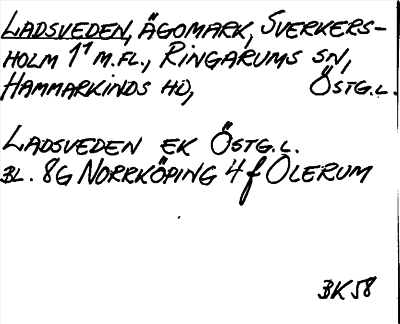 LADSVEDEN, ÄGOMARK, SVERKERS-
HOLM 1¹ M.FL., RINGARUMS SN,
HAMMARKINDS HD, ÖSTG.L.
LADSVEDEN EK ÖSTG.L.
BL. 8G NORRKÖPING 4f OLERUM
BK 58